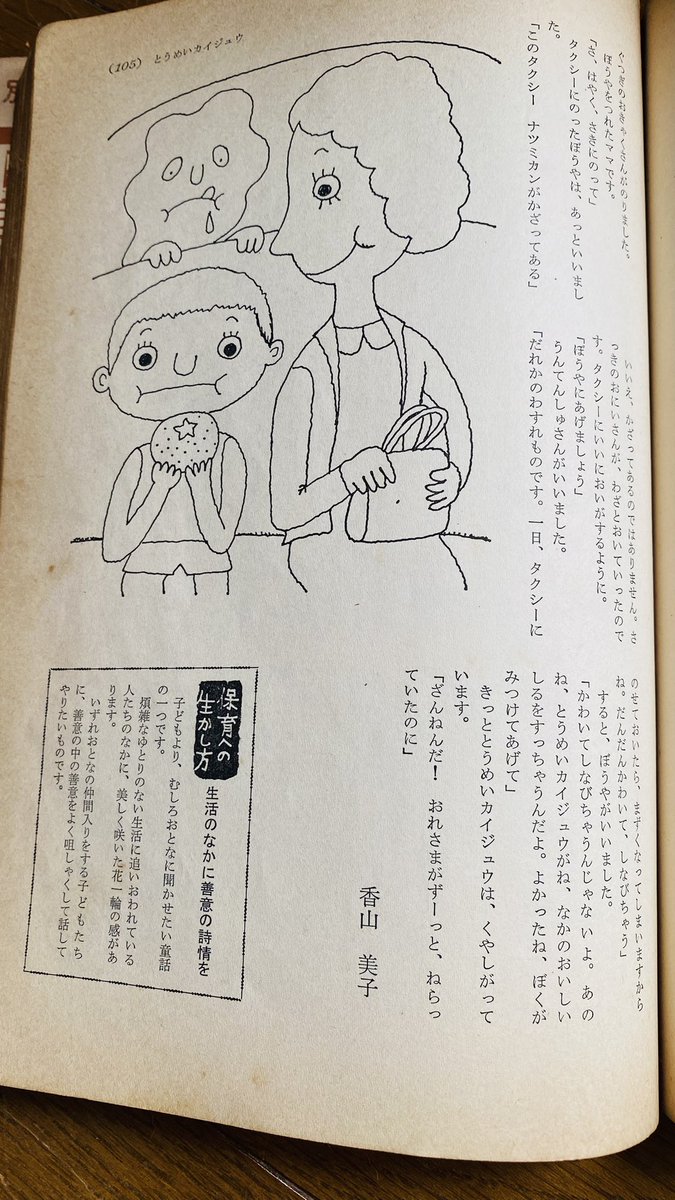 (105) とうめいカイジュウ
ぐつぎのおきゃくさんがのりました。
ぼうやをつれたママです。
「さ、はやく、さきにのって」
タクシーにのったぼうやは、あっといいまし
た。
「このタクシー ナツミカンがかざってある」
いいえ、かざってあるのではありません。さ
っきのおにいさんが、わざとおいていったので
す。タクシーにいいにおいがするように。
「ぼうやにあげましょう」
うんてんしゅさんがいいました。
「だれかのわすれものです。一日、タクシーに
のせておいたら、まずくなってしまいますから
ね。だんだんかわいて、しなびちゃう」
すると、ぼうやがいいました。
「かわいてしなびちゃうんじゃないよ。あの
ね、とうめいカイジュウがね、なかのおいしい
しるをすっちゃうんだよ。よかったね、ぼくが
みつけてあげて」
きっととうめいカイジュウは、くやしがって
います。
「ざんねんだ! おれさまがずーっと、ねらっ
ていたのに」
香山 美子
保育への
生かし方
生活のなかに善意の詩情を
子どもより、むしろおとなに聞かせたい童話
の一つです。
煩雑なゆとりのない生活に追いおわれている
人たちのなかに、美しく咲いた花一輪の感があ
ります。
いずれおとなの仲間入りをする子どもたち
に、善意の中の善意をよく咀しゃくして話して
やりたいものです。